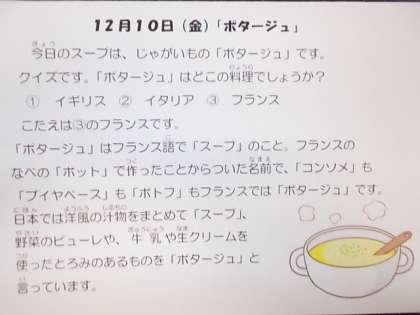 12月10日（金）「ポタージュ」
今日のスープは、じゃがいもの「ポタージュ」です。
クイズです。「ポタージュ」はどこの料理でしょうか？
① イギリス ② イタリア ③ フランス
こたえは③のフランスです。
「ポタージュ」はフランス語で「スープ」のこと。フランスの
なべの「ポット」で作ったことからついた名前で、「コンソメ」も
「ブイヤベース」も「ポトフ」もフランスでは「ポタージュ」です。
日本では洋風の汁物をまとめて「スープ」、
野菜のピューレや、牛乳や生クリームを
使ったとろみのあるものを「ポタージュ」と
言っています。